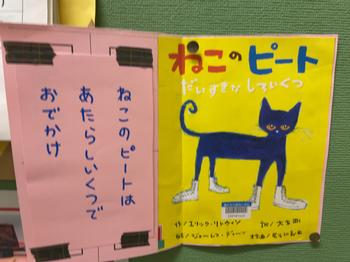 ねこのピートは
あたらしいくつで
おでかけ
ねこのピート
だいすきなしろいくつ
作/エリック・リトウィン
絵/ジェームス・ディーン
訳/大友剛